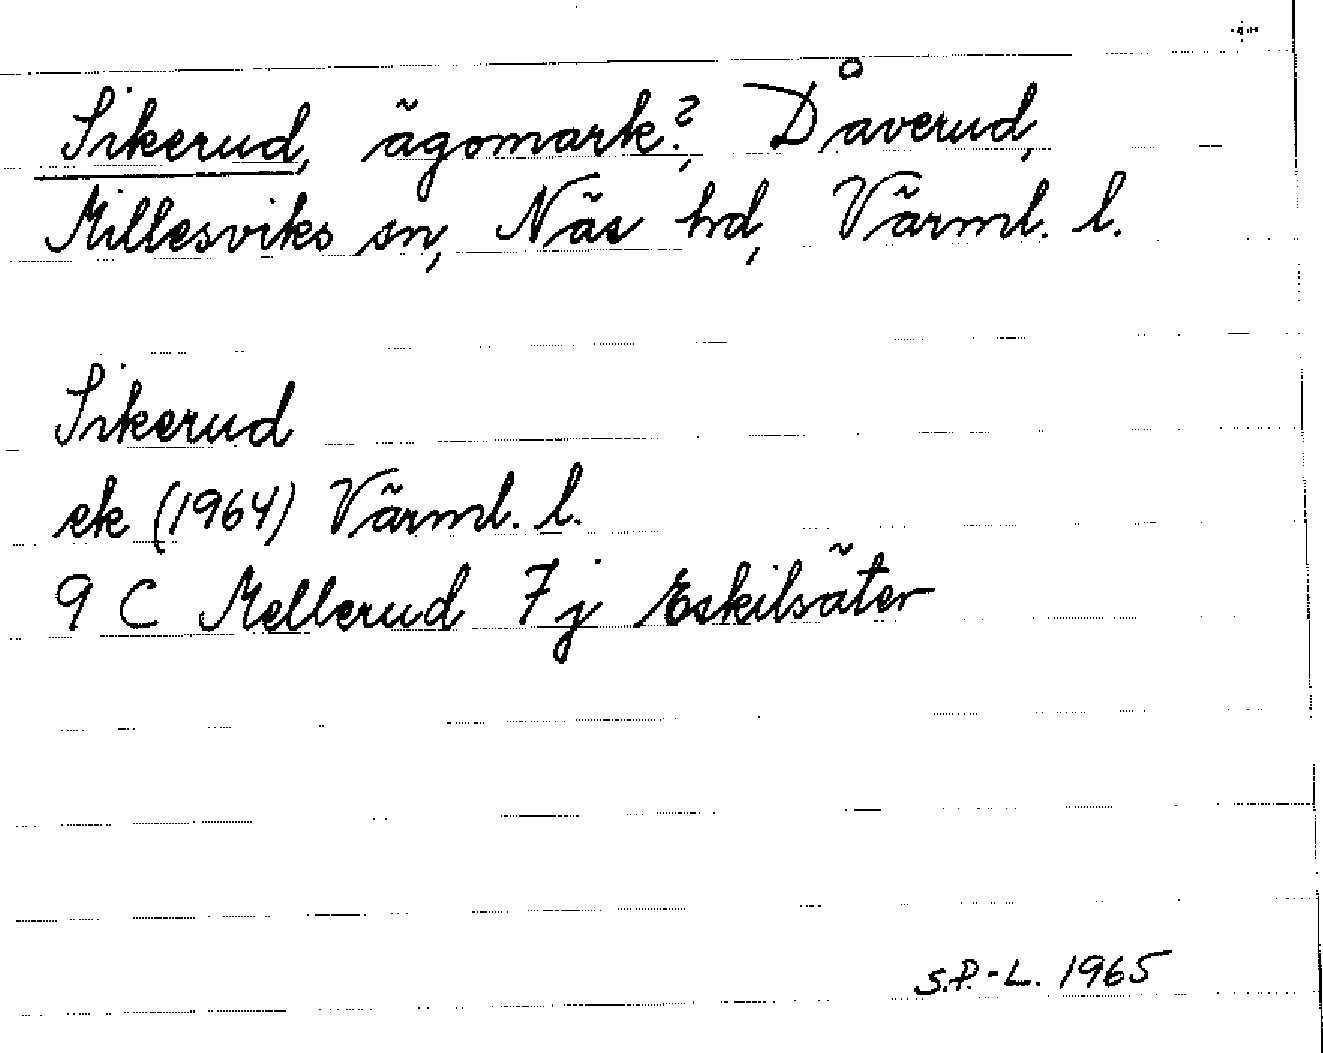 Sikerud, ägomark?, Dåverud,
Millesviks sn, Näs hd, Värml. l.
Sikerud
ek (1964) Värml. l.
9 C Mellerud 7 j Eskilsäter
S.P.-L. 1965